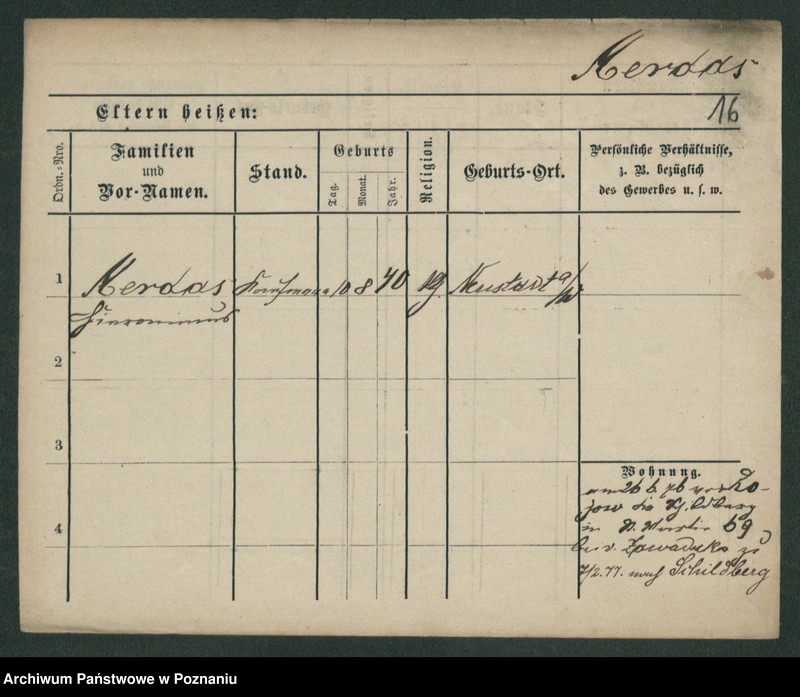 Merdas
16
Eltern heißen:
Ordn.-Nro.
Familien
und
Vor-Namen.
Stand.
Geburts
Tag.
Monat.
Jahr.
Religion.
Geburts-Ort.
Persönliche Verhältnisse,
z. B. bezüglich
des Gewerbes u. s. w.
1
Merdas Kaufmann 10 8 40 Neustadt a/W
Hieronimus
2
3
4
Wohnung.
am 26 6. 76 von Ko-
in St. Martin 69
bei v. Zawadzka zu
7/2. 77. nach Schildberg
Archiwum Państwowe w Poznaniu